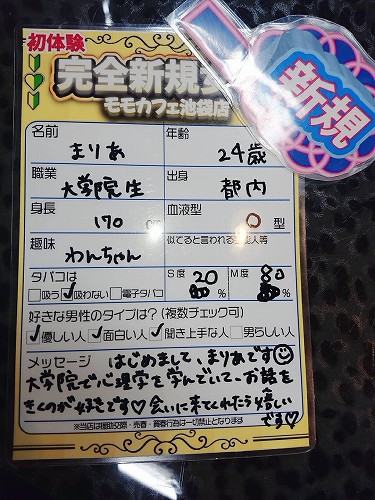 初体験
完全新規
モモカフェ池袋店
新規
名前 まりあ 年齢 24歳
職業 大学院生 出身 都内
身長 170 cm 血液型 O 型
趣味 わんちゃん 似てると言われる 人等
タバコは S度 20 % M度 80 %
□吸う ☑吸わない □電子タバコ
好きな男性のタイプは?(複数チェック可)
☑優しい人 ☑面白い人 ☑聞き上手な人 □男らしい人
メッセージ はじめまして、まりあです☺
大学院で心理学を学んでいてーお話を
きくのが好きです♡会いに来てくれたら嬉しい
です♡
※当店は援助交際・売春・買春行為は一切禁止となります